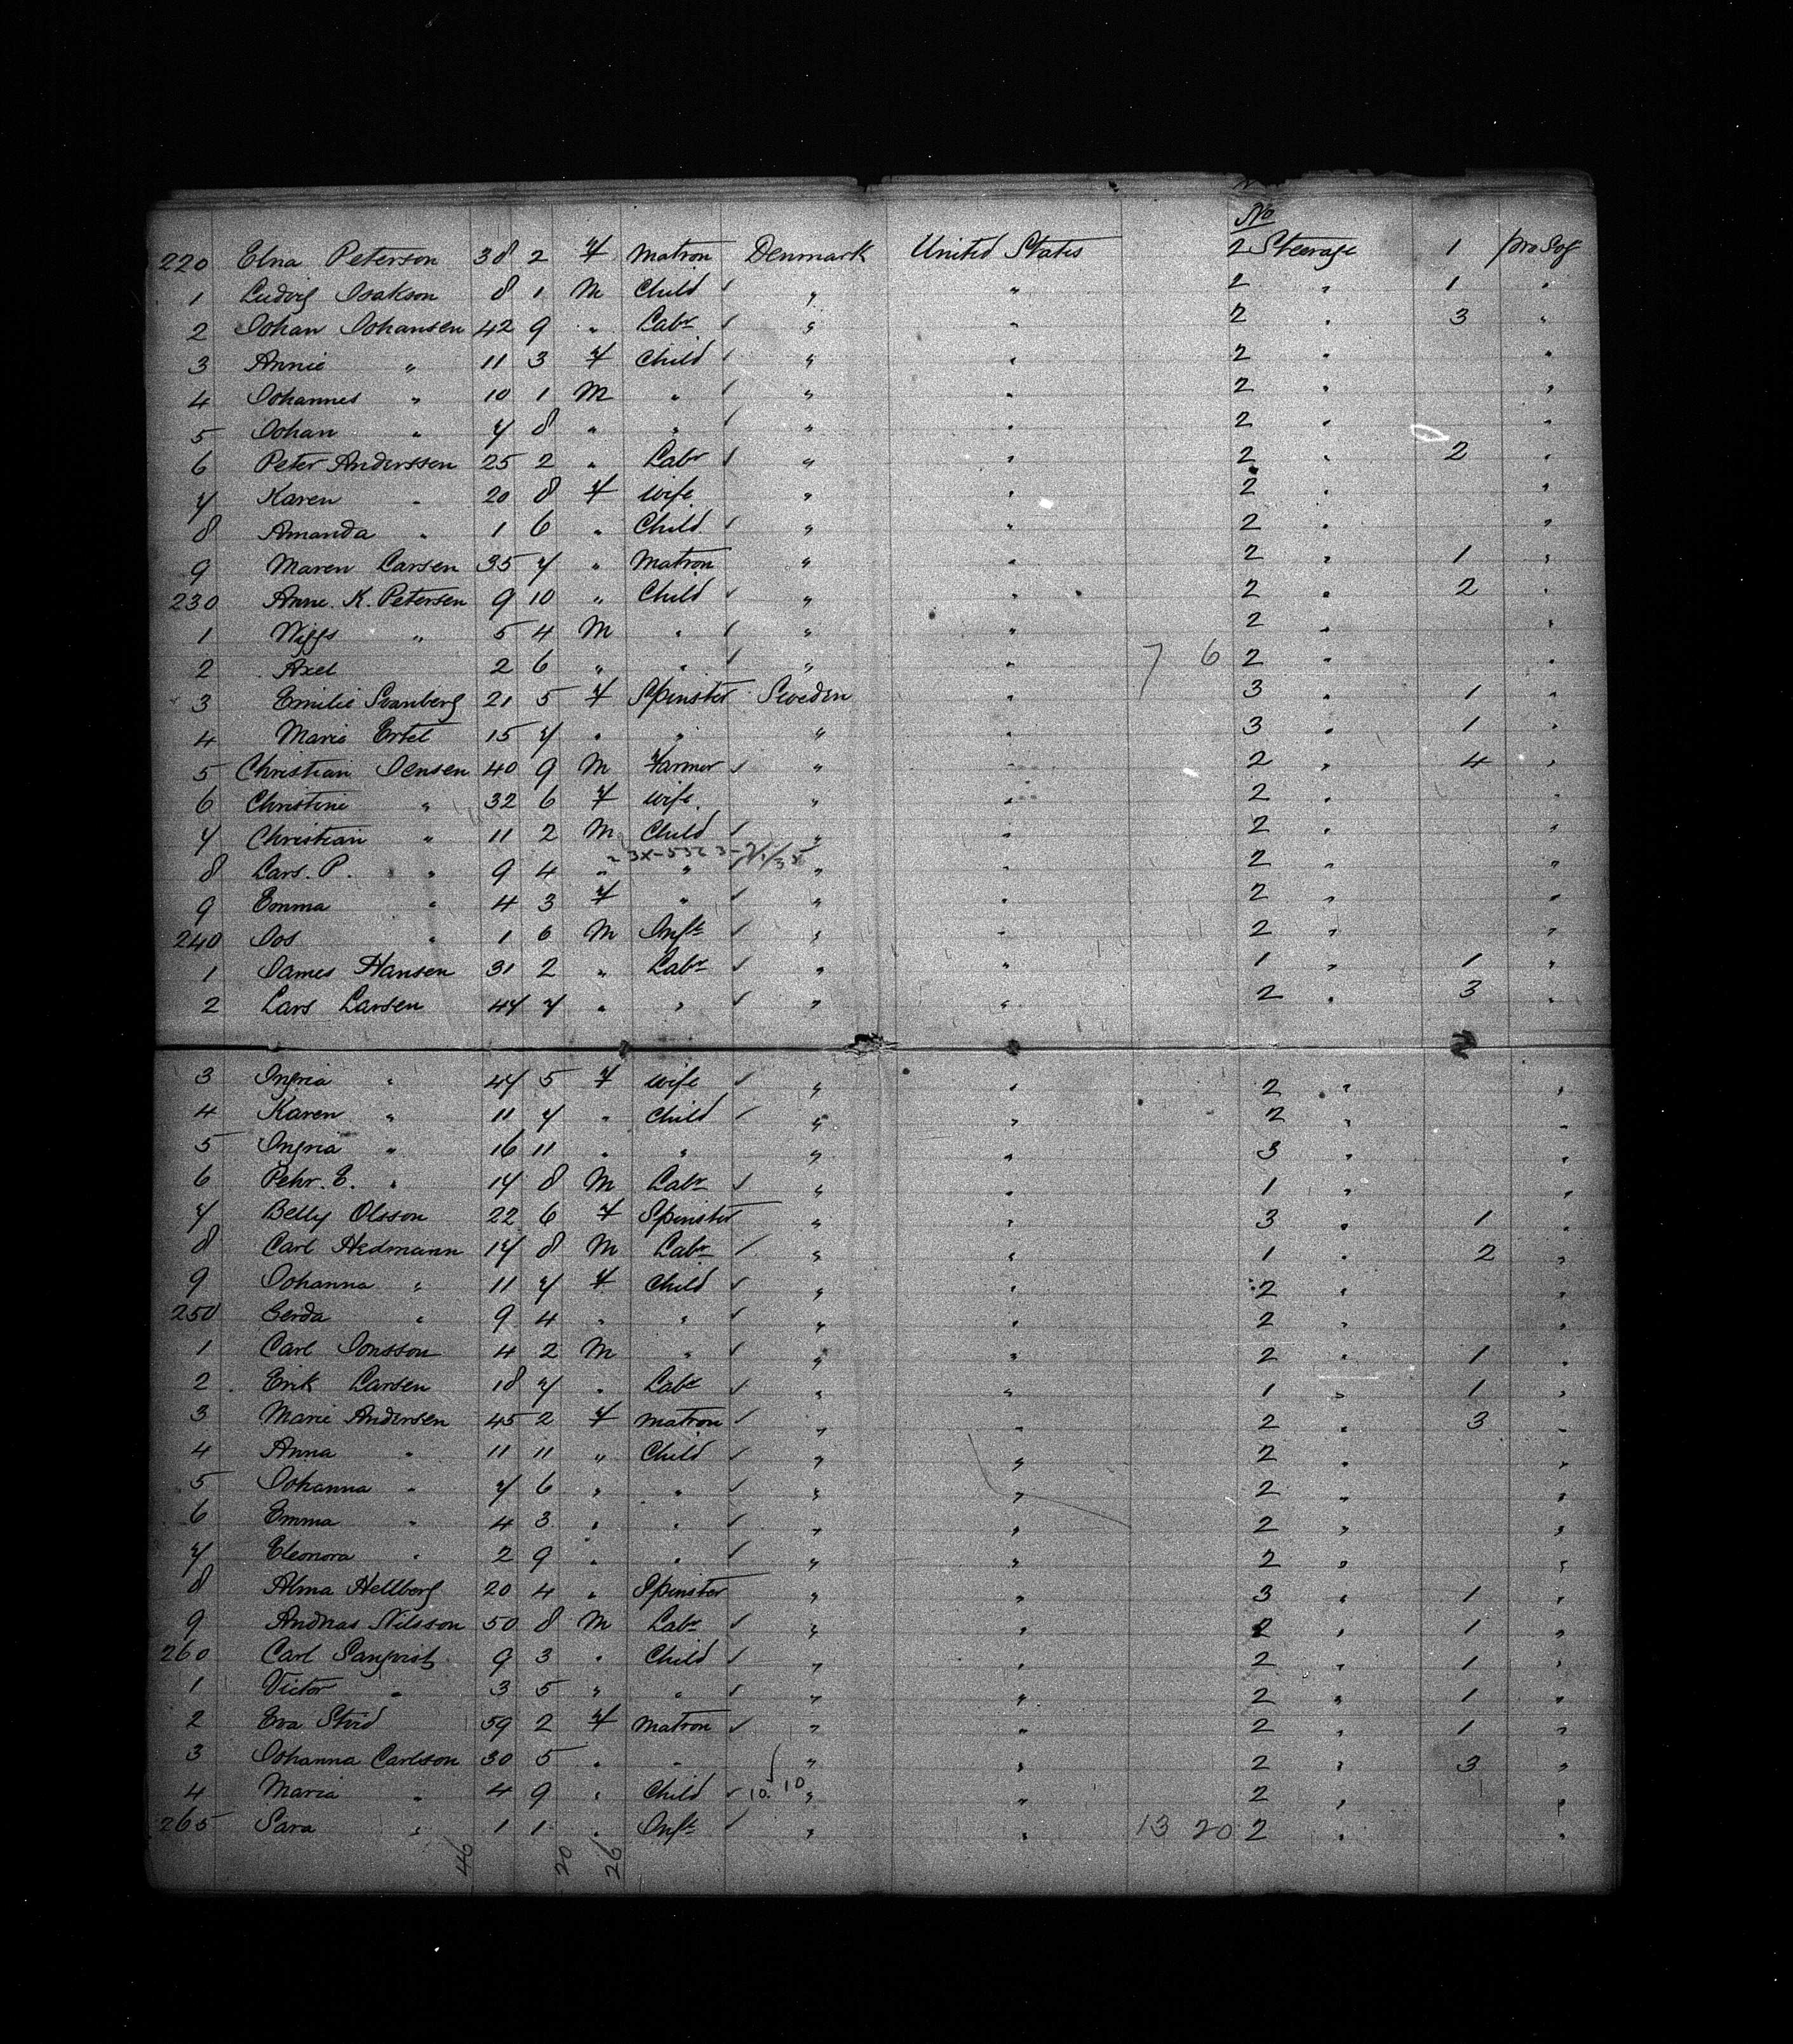 No
220 Elna Peterson 38 2 F Matron Denmark United States 2 Steerage 1 pro Sog
1 Ludvig Isakson 8 1 M Child ✓ " " 2 " 1 "
2 Johan Johansen 42 9 " Labr ✓ " " 2 " 3 "
3 Annie " 11 3 F Child ✓ " " 2 " "
4 Johannes " 10 1 M " ✓ " " 2 " "
5 Johan " 7 8 " " ✓ " " 2 " "
6 Peter Anderssen 25 2 " Labr ✓ " " 2 " 2 "
7 Karen " 20 8 F Wife " " 2 " "
8 Amanda " 1 6 " Child ✓ " " 2 " "
9 Maren Larsen 35 7 " Matron " " 2 " 1 "
230 Anne. K. Petersen 9 10 " Child ✓ " " 2 " 2 "
1 Niggs " 5 4 M " ✓ " " 2 " "
2 Axel 2 6 " " ✓ " " 7 6 2 " "
3 Emilie Svanberg 21 5 F Spinster Sweden " 3 " 1 "
4 Marie Ertel 15 7 " " " " 3 " 1 "
5 Christian Jensen 40 9 M Farmer ✓ " " 2 " 4 "
6 Christine " 32 6 F Wife " " 2 " "
7 Christian " 11 2 M Child ✓ " " 2 " "
8 Lars. P. " 9 4 " " " " 2 " "
9 Emma " 4 3 F " ✓ " " 2 " "
240 Jos " 1 6 M Inft ✓ " " 2 " "
1 James Hansen 31 2 " Labr ✓ " " 1 " 1 "
2 Lars Larsen 47 7 " " ✓ " " 2 " 3 "
3 Ingria " 47 5 F Wife ✓ " " 2 " "
4 Karen " 11 7 " Child ✓ " " 2 " "
5 Ingria " 16 11 " " " " 3 " "
6 Pehr. E. " 17 8 M Labr ✓ " " 1 " "
7 Belly Olsson 22 6 F Spinster " " 3 " 1 "
8 Carl Hedmann 17 8 M Labr ✓ " " 1 " 2 "
9 Johanna " 11 7 F Child ✓ " " 2 " "
250 Gerda " 9 4 " " ✓ " " 2 " "
1 Carl Jonsson 4 2 M " ✓ " " 2 " 1 "
2 Erik Larsen 18 7 " Labr ✓ " " 1 " 1 "
3 Marie Andersen 45 2 F Matron ✓ " " 2 " 3 "
4 Anna " 11 11 " Child ✓ " " 2 " "
5 Johanna " 7 6 " " ✓ " " 2 " "
6 Emma " 4 3 " " ✓ " " 2 " "
7 Eleonora " 2 9 " " ✓ " " 2 " "
8 Alma Hellberg 20 4 " Spinster " " 3 " 1 "
9 Andreas Nilsson 50 8 M Labr ✓ " " 2 " 1 "
260 Carl 9 3 " Child ✓ " " 2 " 1 "
1 Victor " 3 5 " " ✓ " " 2 " 1 "
2 Eva Stvid 59 2 F Matron ✓ " " 2 " 1 "
3 Johanna Carlsson 30 5 " " ✓ " " 2 " 3 "
4 Maria " 4 9 " Child ✓ 10 10 " " 2 " "
265 Sara " 1 1 " Inft ✓ " " 13 20 2 " "
46 20 26